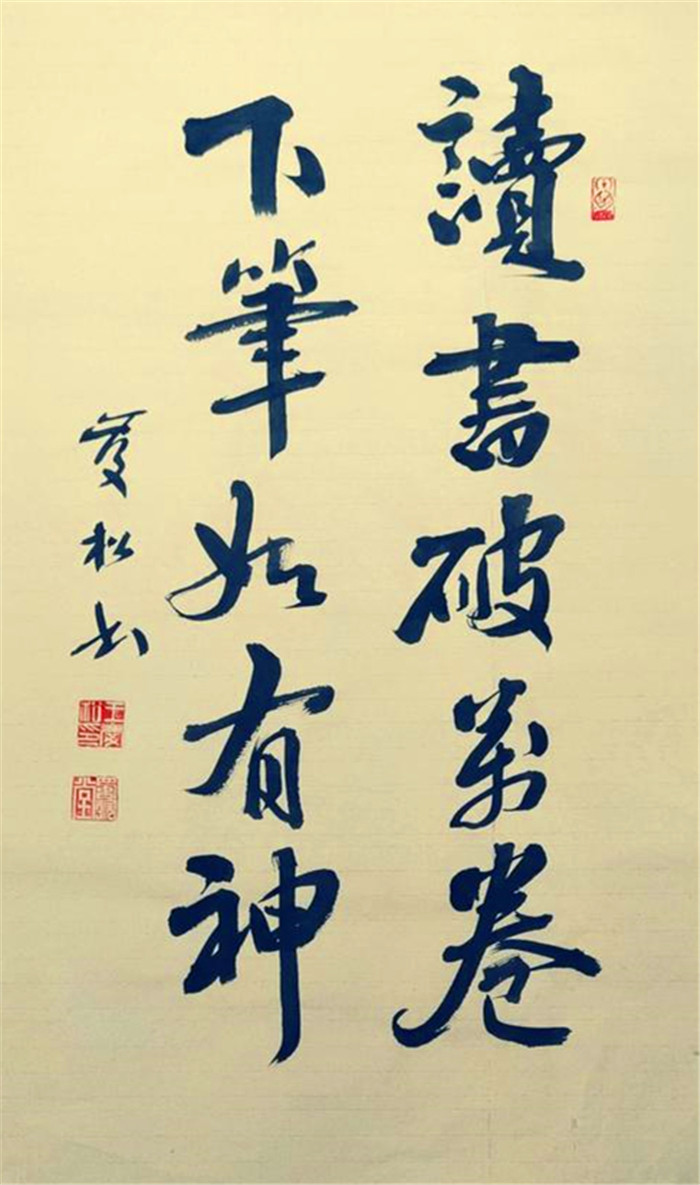 讀書破萬卷
下筆如有神
慶松书